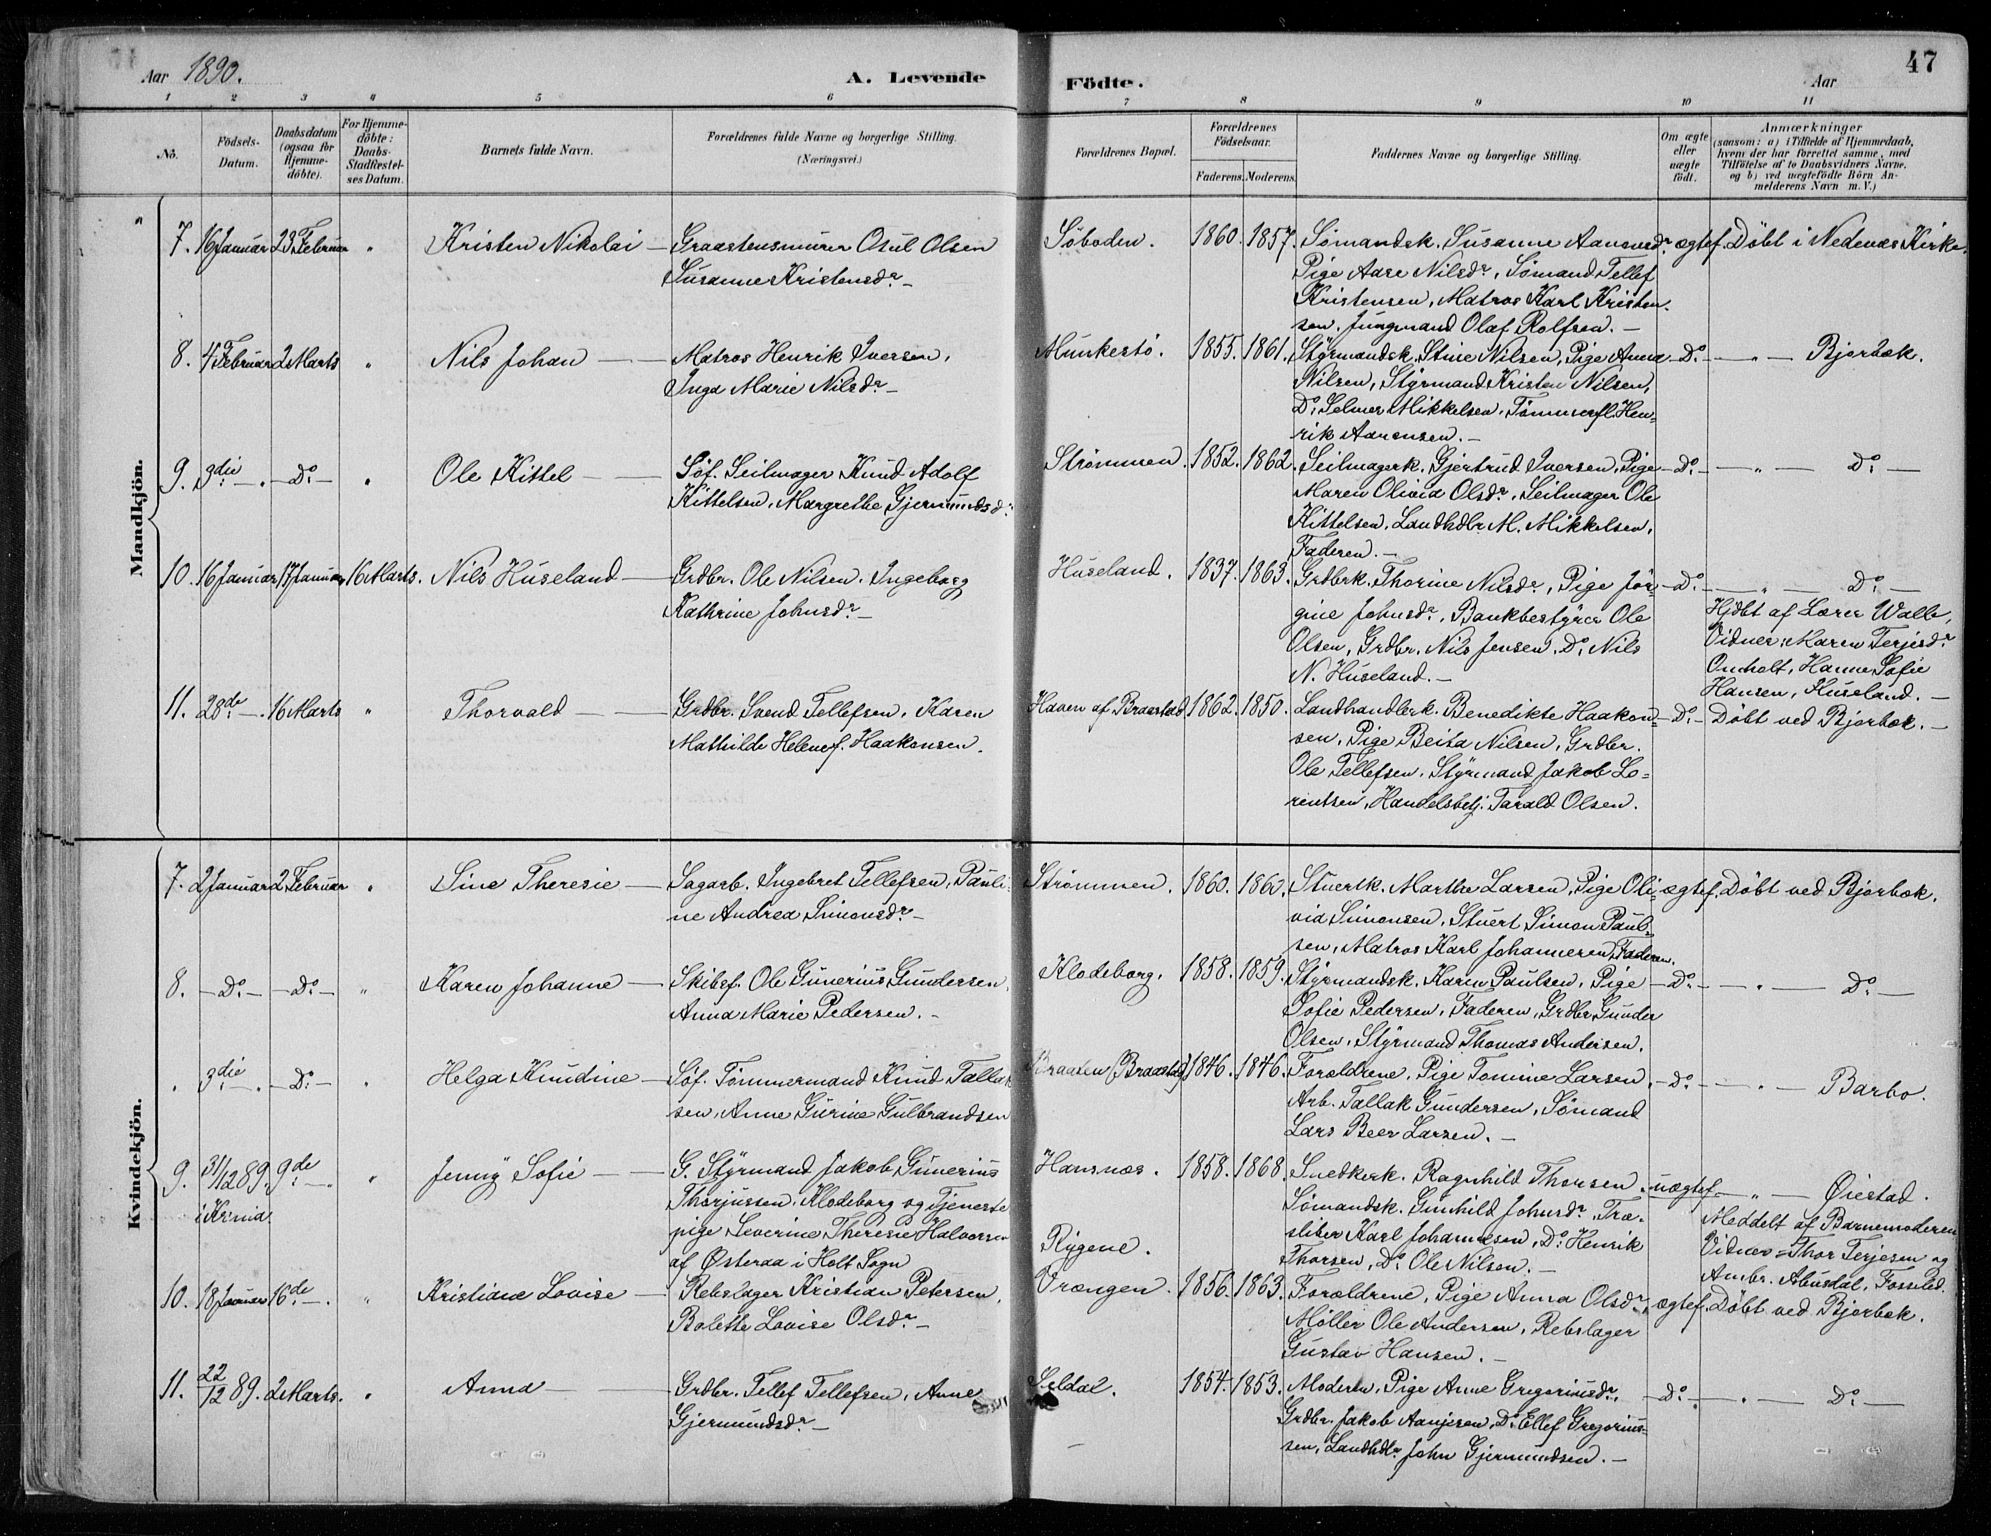 47
Aar 1890.
A. Levende Födte.
Aar
1 2 3 4 5 6 7 8 9 10 11
Nö.
Födsels-Datum.
Daabsdatum (ogsaa for Hjemme-döbte).
For Hjemme-döbte: Daabs-Stadfæstel-ses Datum.
Barnets fulde Navn.
Forældrenes fulde Navne og borgerlige Stilling.
(Næringsvei.)
Forældrenes Bopæl.
Forældrenes Födselsaar.
Faderens. Moderens.
Faddernes Navne og borgerlige Stilling.
Om ægte eller uægte födt.
Anmærkninger
(saasom: a) i Tilfælde af Hjemmedaab, hvem der har forrettet samme, med Tilföielse af to Daabsvidners Navne, og b) ved uægtefödte Börn Anmelderens Navn m. V.)
Mandkjön.
7. 16 Januar 23 Februar " Kristen Nikolai — Graastensmurer Osul Olsen
Susanne Kristensdr. —
Søboden. 1860. 1857. Sømandsk. Susanne Aanonsdr. ægtef. Döbt i Nedenæs Kirke.
Pige Aase Nilsdr, Sømand Tellef
Kristensen, Matros Karl Kristen-
sen, Jungmand Olaf Rolfsen. —
8. 4 Februar 2 Marts " Nils Johan — Matros Henrik Iversen,
Inga Marie Nilsdr. —
Munkestø. 1855. 1861. Styrmandsk. Stine Nilsen, Pige Anna — Do. — " — Bjorbæk.
Nilsen, Styrmand Kristen Nilsen,
Do. Selmer Mikkelsen, Tømmerfl. Hen-
rik Aanonsen. —
9. 3die — " — Do. — " Ole Kittel — Søf. Seilmager Knud Adolf
Kittelsen, Margrethe Gjermundsdr.
Strømmen. 1852. 1862. Seilmagerk. Gjertrud Iversen, Pige — Do. — " — Do. —
Maren Olivia Olsdr, Seilmager Ole
Kittelsen, Landhdlr M. Mikkelsen,
Faderen. —
10. 16 Januar 17 Januar 16 Marts. Nils Huseland — Grdbr. Ole Nilsen, Ingeborg
Kathrine Johnsdr. —
Huseland. 1837. 1863. Grdbrk. Thorine Nilsdr, Pige Jør- — Do. — " — Do. —
gine Johnsdr, Bankbestyrer Ole
Olsen, Grdbr. Nils Jensen, Do. Nils
N. Huseland. —
Hjdbt af Lærer Walle,
Vidner: Maren Terjesdr.
Omholt, Hanne Sofie
Hansen, Huseland. —
11. 28de — . 16 Marts " Thorvald — Grdbr. Svend Tellefsen, Karen
Mathilde Helene f. Haakonsen.
Haven af Braastad 1862. 1850. Landhandlerk. Benedikte Haakon- — Do. — Döbt ved Bjorbæk. —
sen, Pige Beita Nilsen, Grdbr.
Ole Tellefsen, Styrmand Jakob Lo-
rentsen, Handelsbetj. Tarald Olsen.
Kvindekjön.
7. 2 Januar 2 Februar " Sine Theresie — Sagarb. Ingebret Tellefsen, Pauli-
ne Andrea Simonsdr. —
Strømmen. 1860. 1860. Stuertk. Marthe Larsen, Pige Oli- ægtef. Döbt ved Bjorbæk.
via Simonsen, Stuert Simon Paul-
sen, Matros Karl Johannesen, Faderen.
8. — Do. — — Do. — " Karen Johanne — Skibsf. Ole Gunerius Gundersen,
Anna Marie Pedersen. —
Klodeborg. 1858. 1859. Styrmandsk. Karen Paulsen, Pige — Do. — " — Do. —
Sofie Pedersen, Faderen, Grdbr Gunder
Olsen, Styrmand Thomas Andersen.
. 3die — . — Do. — " Helga Knudine — Søf. Tømmermand Knud Tallak-
sen, Anne Gurine Gulbrandsen
Braaten (Braastad) 1846. 1846. Forældrene, Pige Tomine Larsen — Do. — " — Barbo.
Arb. Tallak Gundersen, Sømand
Lars Beer Larsen. —
9. 31/12 89. 9de — . " Jenny Sofie — G. Styrmand Jakob Gunerius
i Krinia.
Thorjussen, Klodeborg og Tjeneste
pige Severine Theresie Halvorsen
af Østeraa i Holt Sogn
Hansnæs. 1858. 1868. Snedkerk. Ragnhild Thorsen, uægtef. — " — Øiestad.
Rygene.
Sømandsk. Gunhild Johnsdr, Træ-
sliber Karl Johannesen, Do. Henrik
Thorsen, Do. Ole Nilsen. —
Meddelt af Barnemoderen
Vidner = Thor Terjesen og
Ambr. Aamdal, Fosselid.
10. 18 Januar 16de — . " Kristiane Lovise — Rebslager Kristian Petersen,
Bolette Lovise Olsdr. —
Vrængen. 1856. 1863. Forældrene, Pige Anna Olsdr, ægtef. Döbt ved Bjorbæk.
Møller Ole Andersen, Rebslager
Gustav Hansen. —
11. 22/12 89. 2 Marts. " Anna — Grdbr. Tellef Tellefsen, Anne
Gjermundsdr. —
Seldal. 1854. 1853. Moderen, Pige Anne Gregoriusdr, — Do. — " — Do. —
Grdbr. Jakob Aanjesen, Do. Ellef Gregorius-
sen, Landhdlr. John Gjermundsen. —